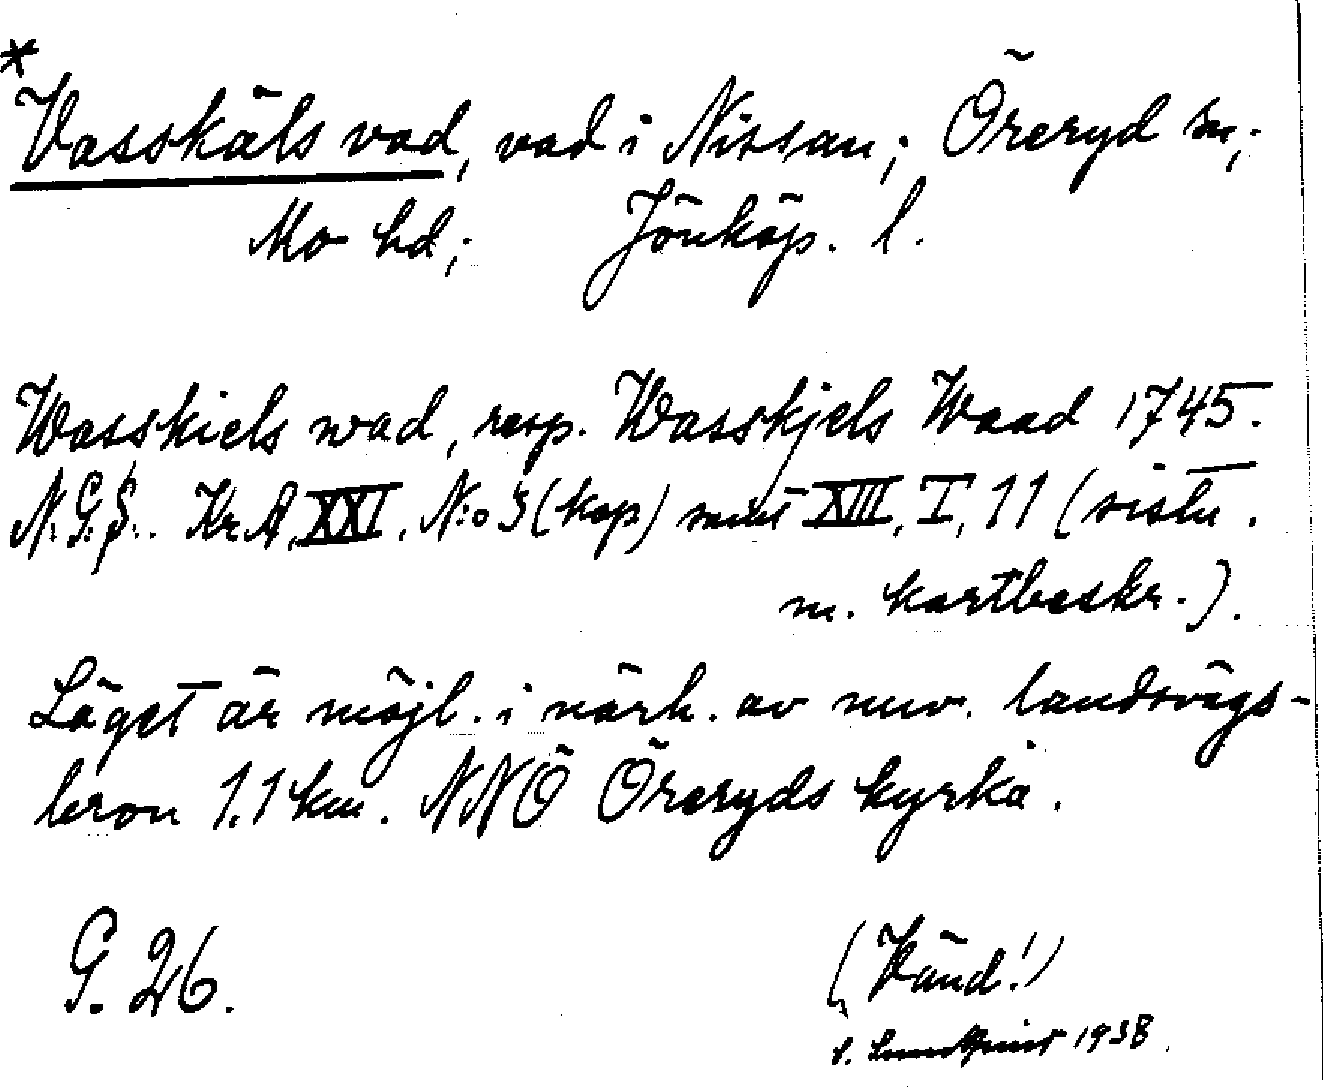 *
Vasskäls vad, vad i Nissan; Öreryd sn;
Mo hd; Jönköp. l.
Wasskiels wad, resp. Wasskjels Waad 1745.
N.G.S.. Kr.A. XXI, N:o 3 (kop) samt XIII, I, 11 (sistn.
m. kartbeskr.).
Läget är möjl. i närh. av nuv. landsvägs-
bron 1.1 km. NNÖ Öreryds kyrka.
G. 26.
(Vänd!)
Lundqvist 1938.